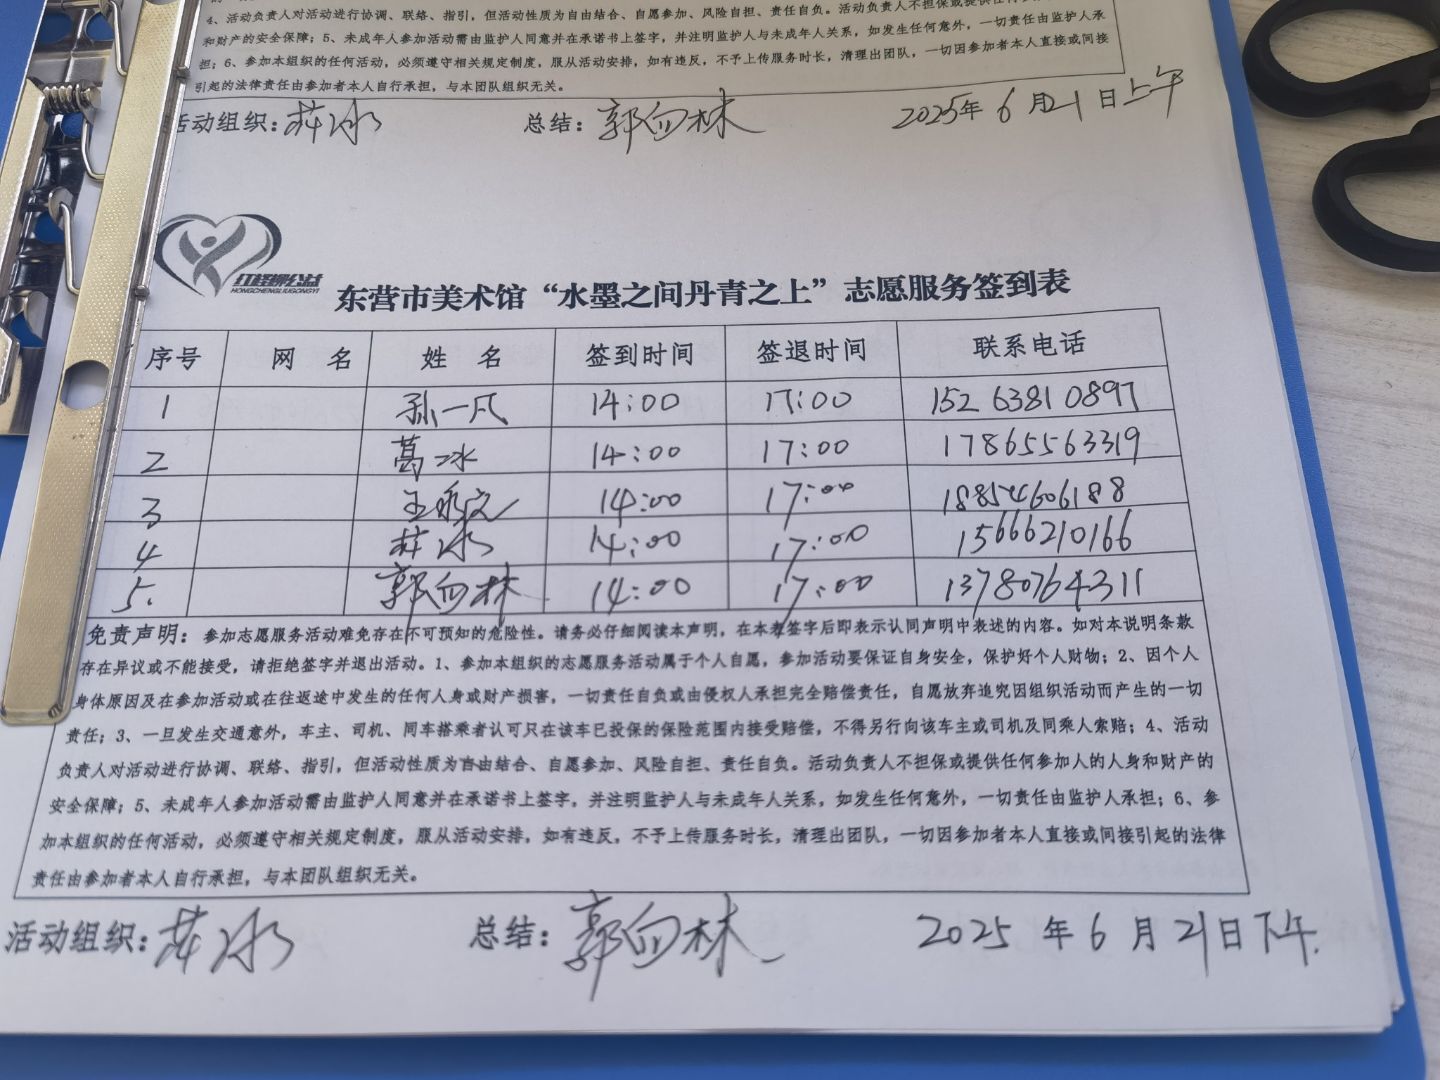 4、活动负责人对活动进行协调、联络、指引，但活动性质为自由结合、自愿参加、风险自担、责任自负。活动负责人不担保或提供任何参
和财产的安全保障；5、未成年人参加活动需由监护人同意并在承诺书上签字，并注明监护人与未成年人关系，如发生任何意外，一切责任由监护人承
担；6、参加本组织的任何活动，必须遵守相关规定制度，服从活动安排，如有违反，不予上传服务时长，清理出团队，一切因参加者本人直接或间接
引起的法律责任由参加者本人自行承担，与本团队组织无关。
活动组织： 总结：郭向林 2025年6月21日上午
红橙绿公益
HONGCHENGLUGONGYI
东营市美术馆“水墨之间丹青之上”志愿服务签到表
序号 网 名 姓 名 签到时间 签退时间 联系电话
1 孙一凡 14:00 17:00 15263810897
2 葛冰 14:00 17:00 17865563319
3 14:00 17:00 18854606188
4 14:00 17:00 15666210166
5. 郭向林 14:00 17:00 13780764311
免责声明：参加志愿服务活动难免存在不可预知的危险性。请务必仔细阅读本声明，在本表签字后即表示认同声明中表述的内容。如对本说明条款
存在异议或不能接受，请拒绝签字并退出活动。1、参加本组织的志愿服务活动属于个人自愿，参加活动要保证自身安全，保护好个人财物；2、因个人
身体原因及在参加活动或在往返途中发生的任何人身或财产损害，一切责任自负或由侵权人承担完全赔偿责任，自愿放弃追究因组织活动而产生的一切
责任；3、一旦发生交通意外，车主、司机、同车搭乘者认可只在该车已投保的保险范围内接受赔偿，不得另行向该车主或司机及同乘人索赔；4、活动
负责人对活动进行协调、联络、指引，但活动性质为自由结合、自愿参加、风险自担、责任自负。活动负责人不担保或提供任何参加人的人身和财产的
安全保障；5、未成年人参加活动需由监护人同意并在承诺书上签字，并注明监护人与未成年人关系，如发生任何意外，一切责任由监护人承担；6、参
加本组织的任何活动，必须遵守相关规定制度，服从活动安排，如有违反，不予上传服务时长，清理出团队，一切因参加者本人直接或间接引起的法律
责任由参加者本人自行承担，与本团队组织无关。
活动组织： 总结：郭向林 2025年6月21日下午.